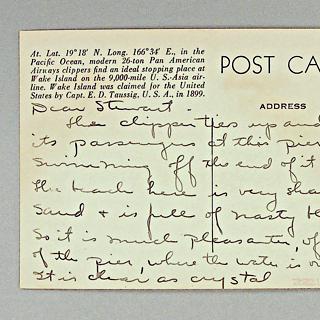 At. Lat. 19°18' N. Long. 166°34' E., in the
Pacific Ocean, modern 26-ton Pan American
Airways clippers find an ideal stopping place at
Wake Island on the 9,000-mile U. S.-Asia air-
line. Wake Island was claimed for the United
States by Capt. E. D. Taussig, U. S. A., in 1899.
POST CA
ADDRESS
Dear Stewart -
The clipper ties up and
its passengers at this pier
Swimming off the end of it
The beach here is very sha
Sand & is full of nasty
So it is much pleasanter, of
of the pier, where the water is
It is clear as crystal